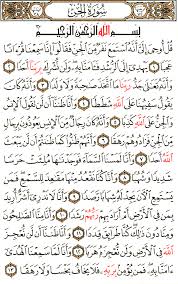 سُورَةُ الجِنِّ
بِسْمِ اللَّهِ الرَّحْمَٰنِ الرَّحِيمِ
قُلْ أُوحِيَ إِلَيَّ أَنَّهُ اسْتَمَعَ نَفَرٌ مِّنَ الْجِنِّ فَقَالُوا إِنَّا سَمِعْنَا قُرْءَانًا
عَجَبًا ١ يَهْدِي إِلَى الرُّشْدِ فَـَٔامَنَّا بِهِ وَلَن نُّشْرِكَ بِرَبِّنَا أَحَدًا
٢ وَأَنَّهُ تَعَالَىٰ جَدُّ رَبِّنَا مَا اتَّخَذَ صَاحِبَةً وَلَا وَلَدًا ٣ وَأَنَّهُ كَانَ
يَقُولُ سَفِيهُنَا عَلَى اللَّهِ شَطَطًا ٤ وَأَنَّا ظَنَنَّا أَن لَّن تَقُولَ الْإِنسُ
وَالْجِنُّ عَلَى اللَّهِ كَذِبًا ٥ وَأَنَّهُ كَانَ رِجَالٌ مِّنَ الْإِنسِ يَعُوذُونَ بِرِجَالٍ
مِّنَ الْجِنِّ فَزَادُوهُمْ رَهَقًا ٦ وَأَنَّهُمْ ظَنُّوا كَمَا ظَنَنتُمْ أَن لَّن يَبْعَثَ
اللَّهُ أَحَدًا ٧ وَأَنَّا لَمَسْنَا السَّمَاءَ فَوَجَدْنَاهَا مُلِئَتْ حَرَسًا
شَدِيدًا وَشُهُبًا ٨ وَأَنَّا كُنَّا نَقْعُدُ مِنْهَا مَقَاعِدَ لِلسَّمْعِ فَمَن
يَسْتَمِعِ الْآنَ يَجِدْ لَهُ شِهَابًا رَّصَدًا ٩ وَأَنَّا لَا نَدْرِي أَشَرٌّ أُرِيدَ
بِمَن فِي الْأَرْضِ أَمْ أَرَادَ بِهِمْ رَبُّهُمْ رَشَدًا ١٠ وَأَنَّا مِنَّا الصَّالِحُونَ
وَمِنَّا دُونَ ذَٰلِكَ كُنَّا طَرَائِقَ قِدَدًا ١١ وَأَنَّا ظَنَنَّا أَن لَّن نُّعْجِزَ
اللَّهَ فِي الْأَرْضِ وَلَن نُّعْجِزَهُ هَرَبًا ١٢ وَأَنَّا لَمَّا سَمِعْنَا الْهُدَىٰ
ءَامَنَّا بِهِ فَمَن يُؤْمِن بِرَبِّهِ فَلَا يَخَافُ بَخْسًا وَلَا رَهَقًا ١٣